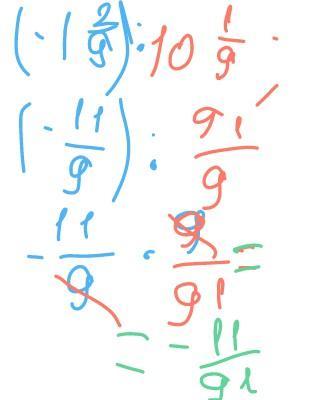 (-1 2/9) : 10 1/9
(-11/9) : 91/9
-11/9 · 9/91 =
= -11/91